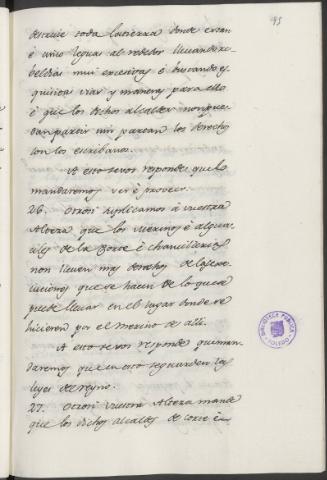 95
destruir toda la tierra donde estan
é cinco leguas al rededor llevando re
beldias mui excesivas é buscando es
quisitas vias y maneras para ello
é que los dichos alcaldes non pue
dan partir nin partan los derechos
con los escribanos.
A esto se vos responde que lo
mandaremos ver é proveer.
26. Otrosi suplicamos á vuestra
Alteza que los merinos é algua
ciles de la Corte é chancilleria
non lleven mas derechos de las exe
cuciones que se hacen de lo que se
puede llevar en el lugar donde se
hicieren por el merino de alli.
A esto se vos responde que man
daremos que en esto se guarden las
leyes del reyno.
27. Otrosi vuestra Alteza mande
que los dichos alcaldes de corte é
BIBLIOTECA PUBLICA
TOLEDO